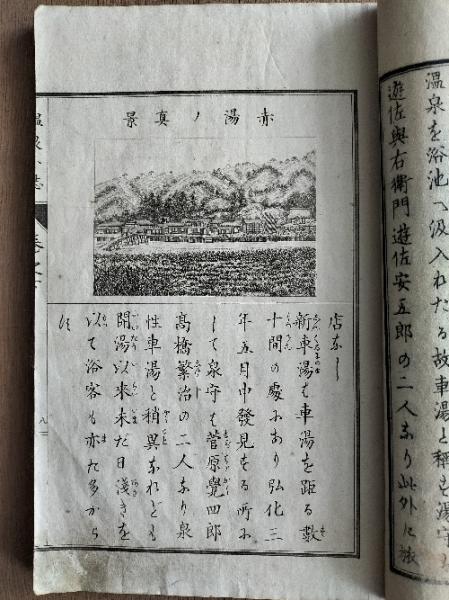 温泉を浴池へ汲入れたる故車湯と稱も湯守も
遊佐與右衛門遊佐安五郎の二人なり此外に旅
赤湯ノ真景
店なし
新車湯も車湯を距る數
十間の處にあり弘化三
年五月中發見をる所に
して泉守も菅原覺四郎
髙橋繁治の二人なり泉
性車湯と稍異なれども
開湯以来未だ日淺きを
以て浴客も亦た多から
す